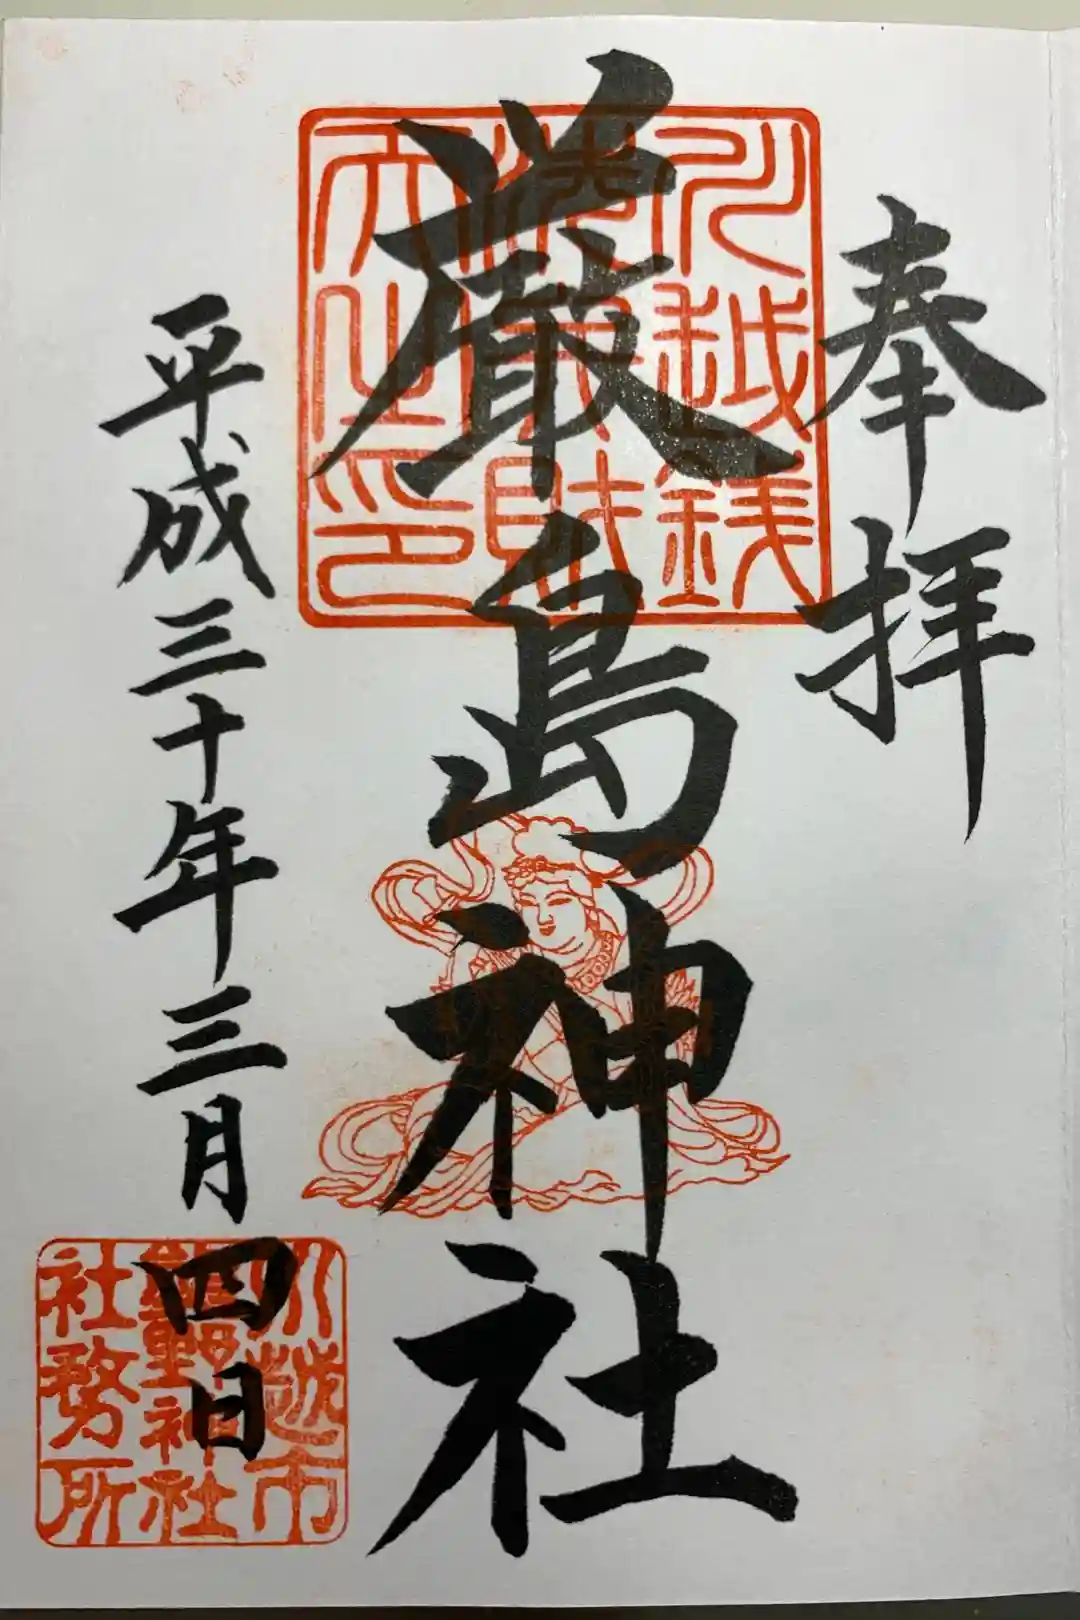 奉拝
厳島神社
平成三十年三月四日
川越銭
洗弁財
天之印
川越市
熊野神社
社務所